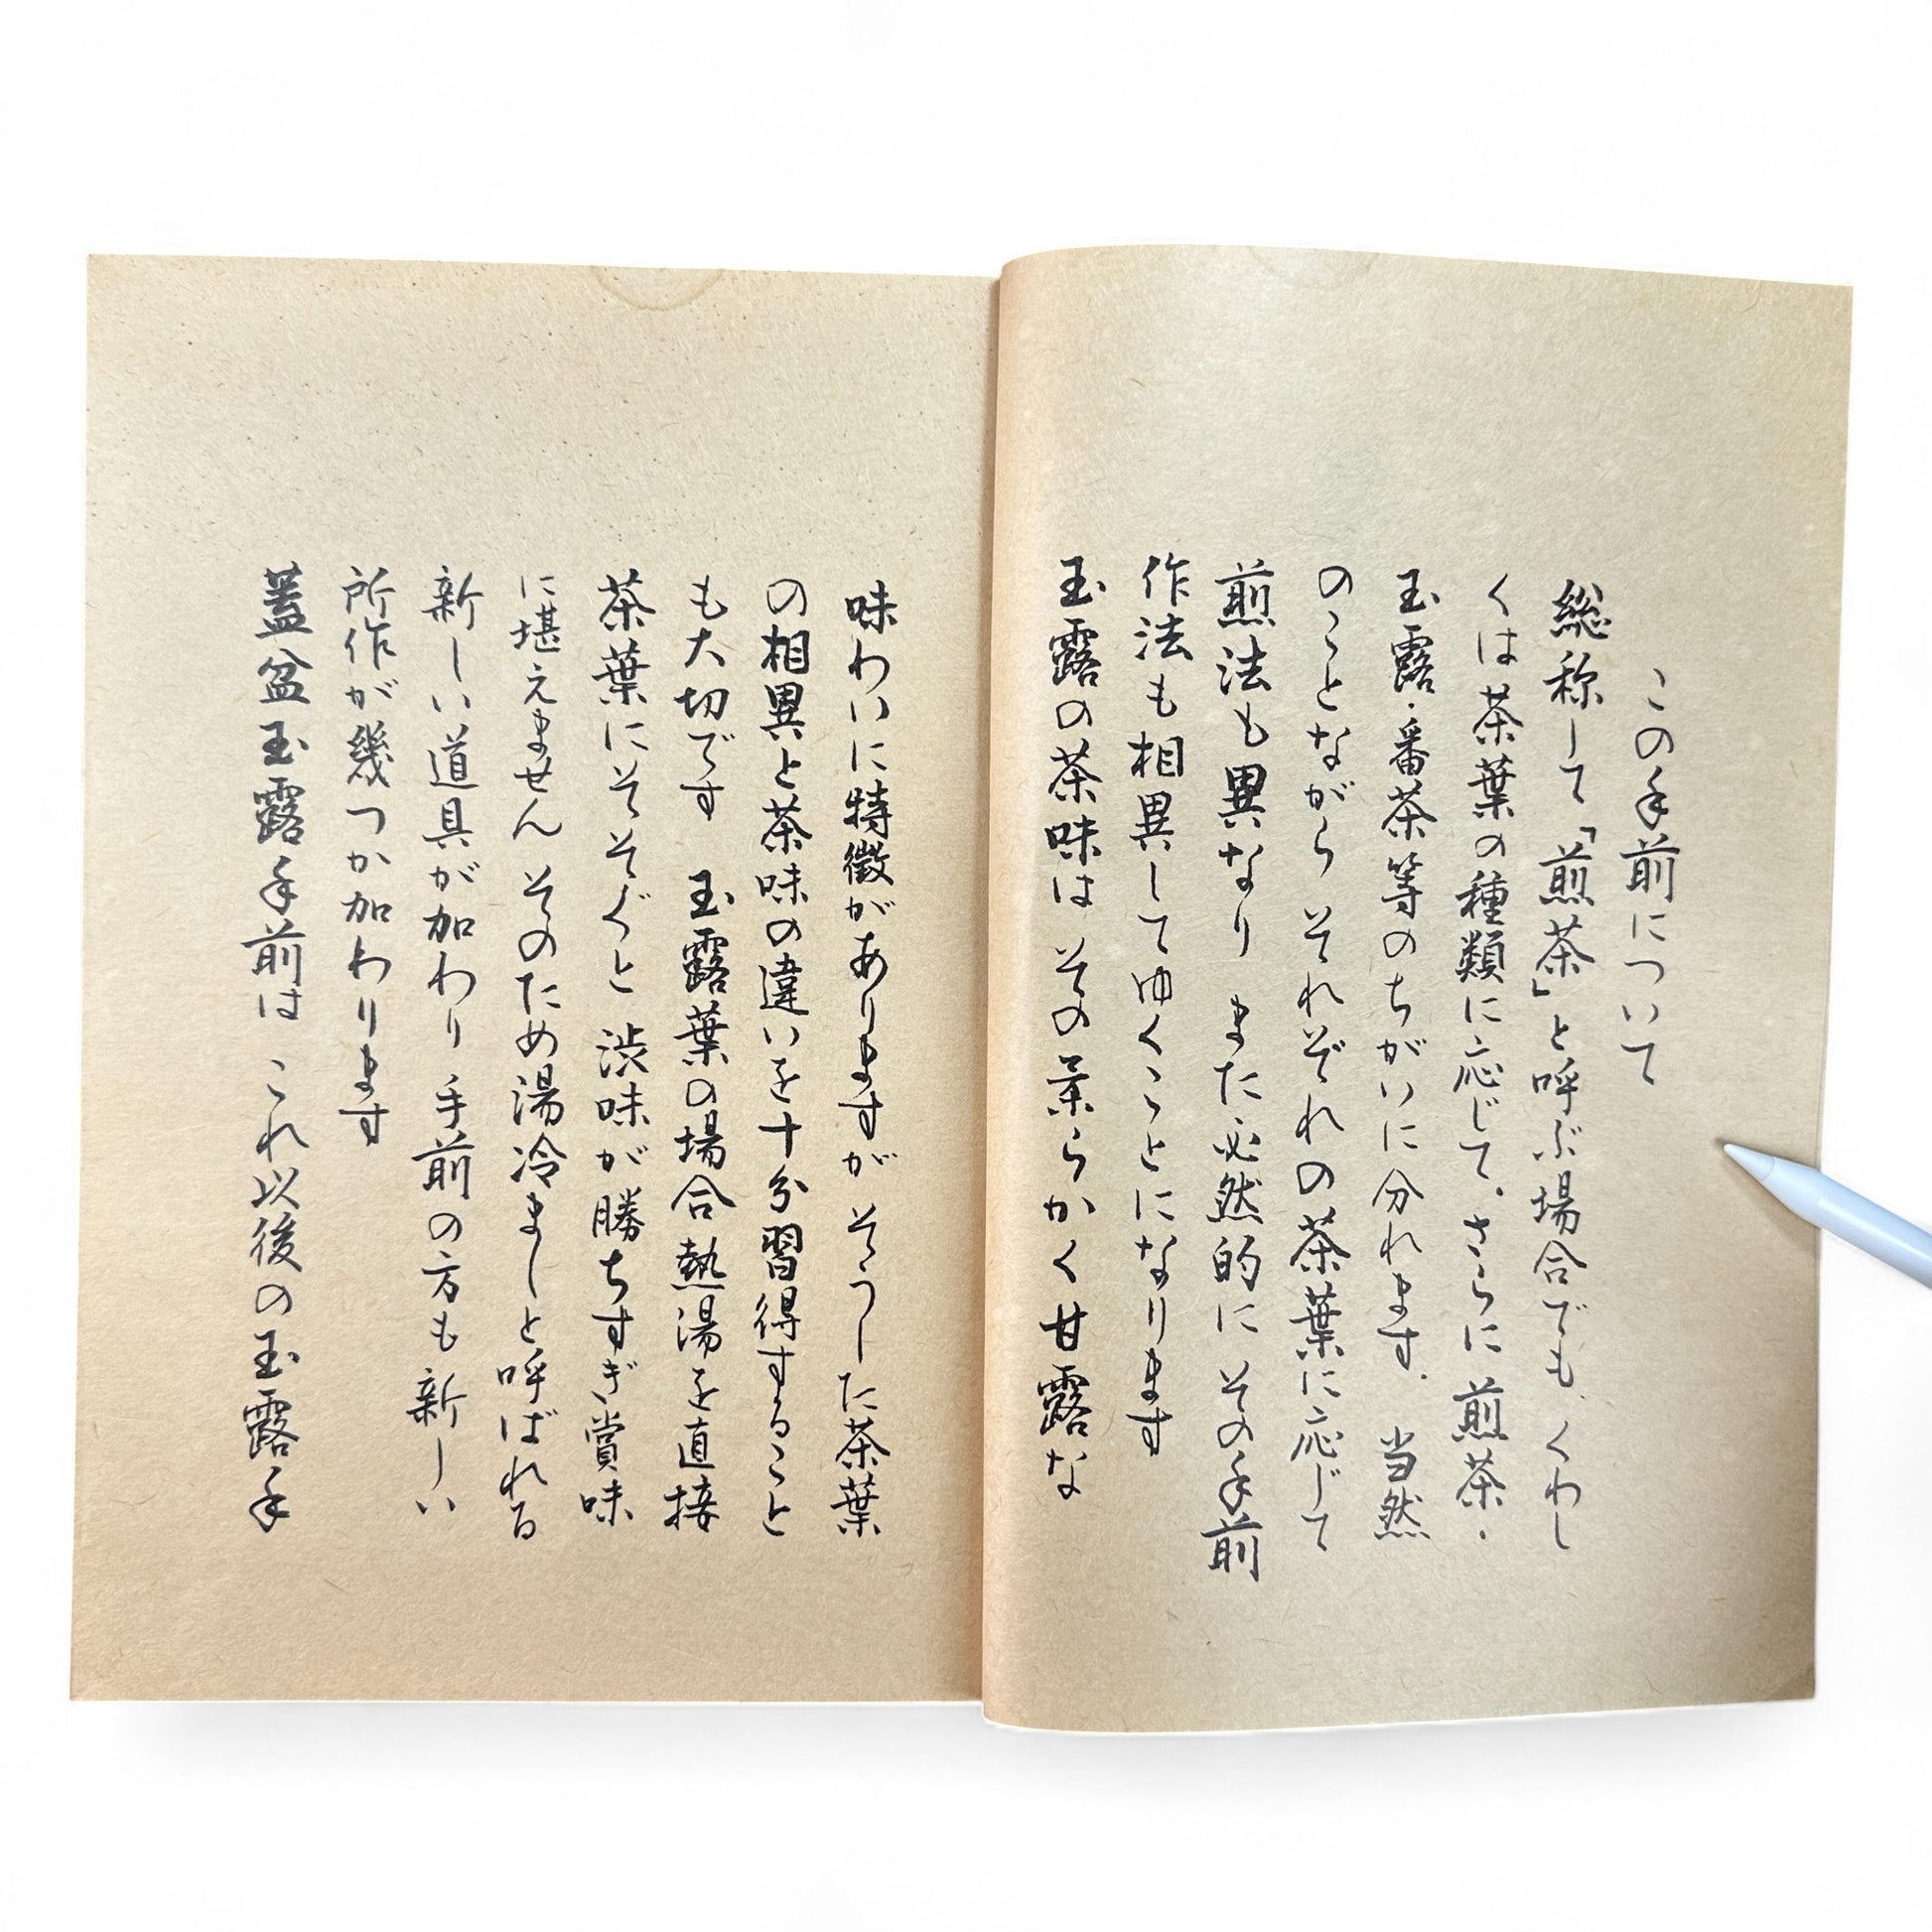 この手前について
総称して「煎茶」と呼ぶ場合でも、くわし
くは茶葉の種類に応じて、さらに煎茶・
玉露・番茶等のちがいに分れます。当然
のことながら それぞれの茶葉に応じて
煎法も異なり また必然的に その手前
作法も相異してゆくことになります
玉露の茶味は その柔らかく甘露な
味わいに特徴がありますが そうした茶葉
の相異と茶味の違いを十分習得すること
も大切です 玉露葉の場合熱湯を直接
茶葉にそそぐと 渋味が勝ちすぎ賞味
に堪えません そのため湯冷ましと呼ばれる
新しい道具が加わり 手前の方も新しい
所作が幾つか加わります
蓋盆玉露手前は これ以後の玉露手